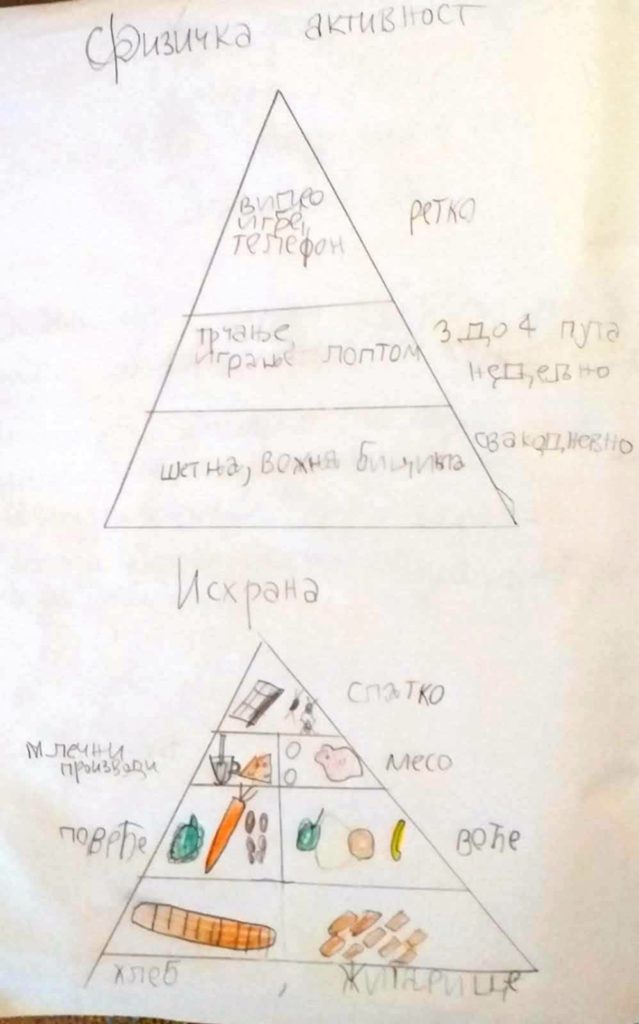 Физичка активност
видео
игре,
телефон
ретко
трчање,
играње лоптом
3 до 4 пута
недељно
шетња, вожња бицикла
свакодневно
Исхрана
слатко
млечни
производи
месо
поврће
воће
хлеб , житарице